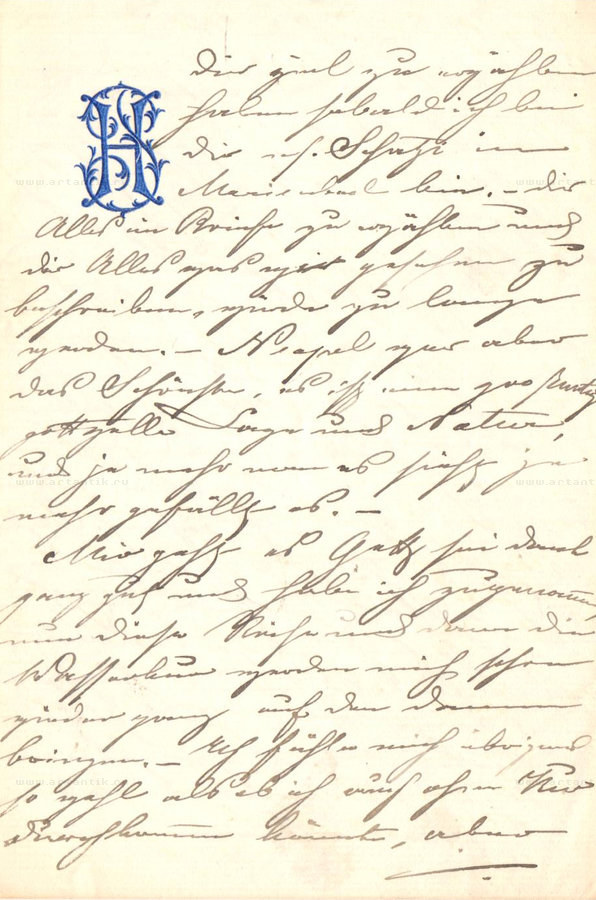 dir viel zu erzählen
haben sobald ich bei
dir m. Schatzi im
Marienbad bin. – Dir
Alles im Briefe zu erzählen und
dir Alles was wir gesehen zu
beschreiben, würde zu lange
werden. – Neapel war aber
das Schönste, es ist eine großartig
gottvolle Lage und Natur,
und je mehr man es sieht je
mehr gefällt es. –
Mir geht es Gott sei dank
ganz gut und habe ich zugenommen
nun diese Reise und dann die
Wasserkur werden mich schon
wieder ganz auf den damm
bringen. – Ich fühle mich übrigens
so wohl als ob ich auch ohne Kur
durchkommen könnte, aber